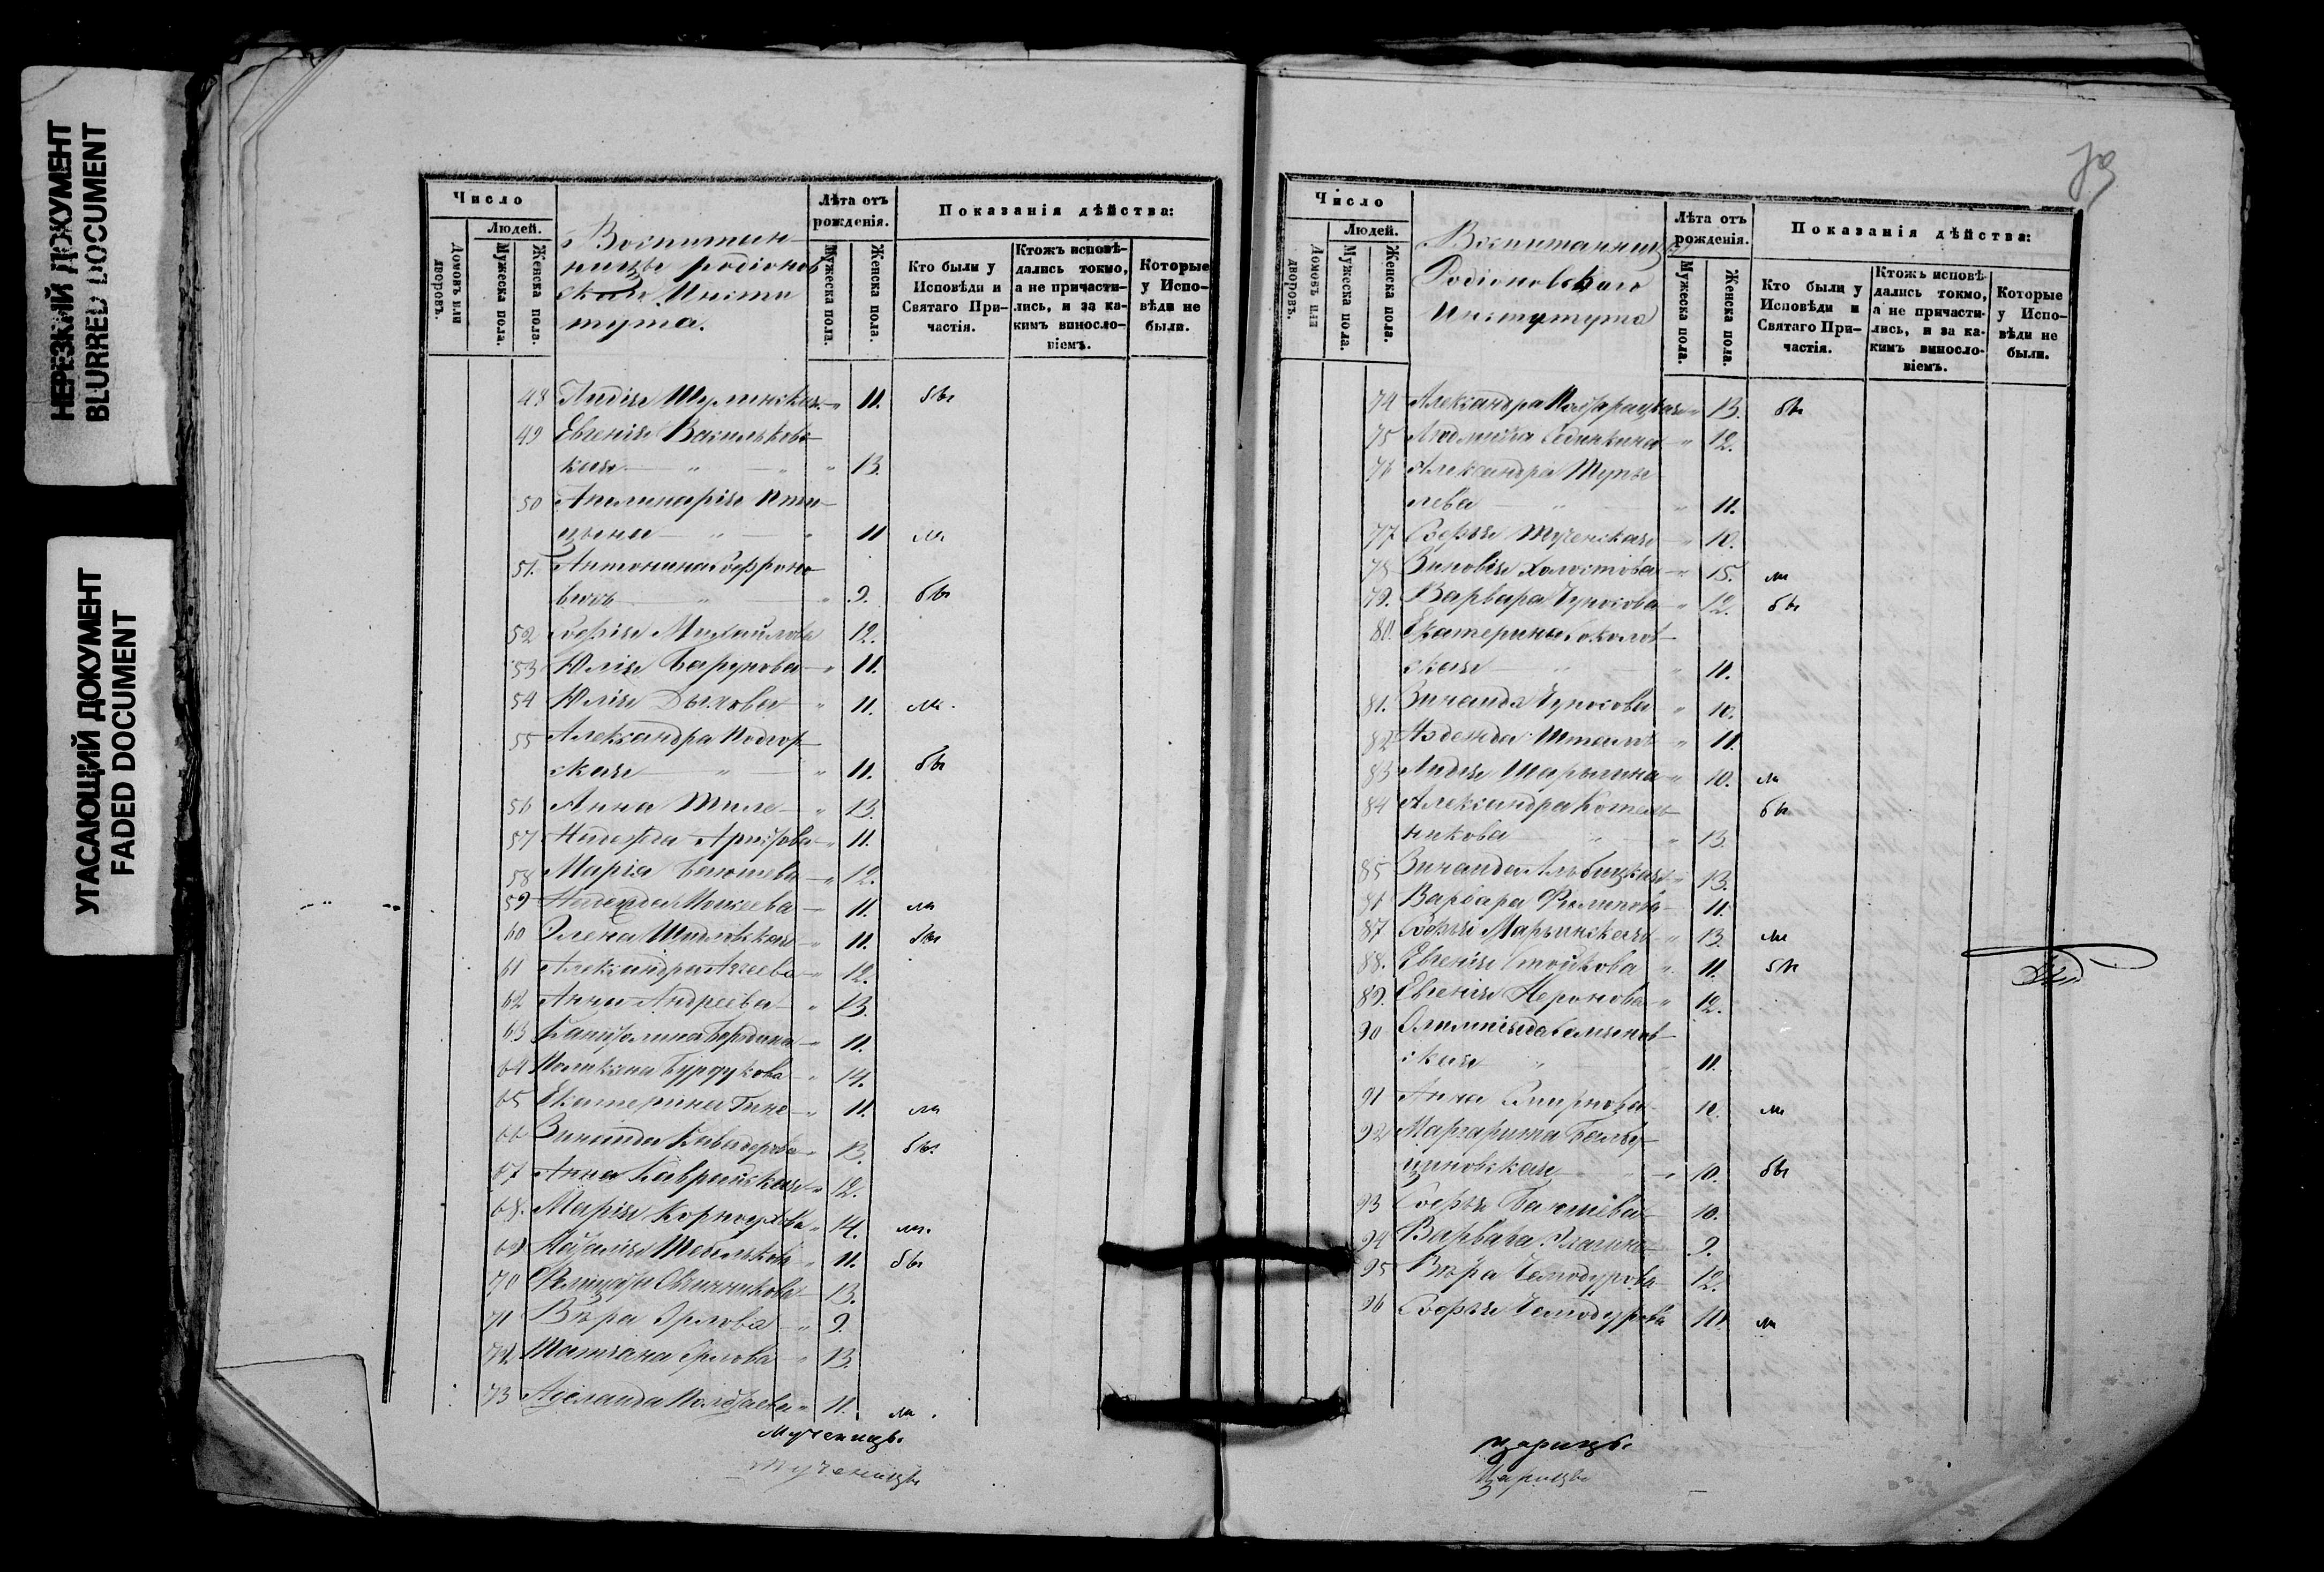 НЕРЕЗКИЙ ДОКУМЕНТ
BLURRED DOCUMENT
УГАСАЮЩИЙ ДОКУМЕНТ
FADED DOCUMENT
Число
Людей.
Домовъ или дворовъ.
Мужеска пола.
Женска пола.
Воспитан
ницы родіонов
скаго Инсти
тута.
Лѣта отъ рожденія.
Мужеска пола.
Женска пола.
Показанія дѣйства:
Кто были у Исповѣди и Святаго Причастія.
Ктожъ исповѣ-
дались токмо,
а не причасти-
лись, и за ка-
кимъ виносло-
віемъ.
Которые
у Испо-
вѣди не
были.
48 Лидія Шулинская " 11. бы
49 Евгенія Васильков
кая " " " 13.
50 Аполинарія Пти
цына " " 11 ли
51. Антонина Софроно
вичь " " 9. бы
52 Софія Михайлова 12.
53 Юлія Барупова " 11.
54 Юлія Дьякова " 11. ли
55 Александра Подгор
ская " " 11. бы
56 Анна Тиле " 13.
57 Надежда Аристова " 11.
58 Марія Баюшева " 12.
59 Надежда Мошеева 11. ли
60 Елена Шидловская " 11. бы
61 Александра Агеева " 12.
62 Анна Андреева " 13.
63 Капитолина Бердина " 11.
64 Поликсена Бурдукова " 14.
65 Екатерина Гине " 11. ли
66 Зинаида Кавадерова " 13. бы
67 Анна Каврайская " 12.
68. Марія Корноухова " 14. ли
69 Наталія Тебелькова " 11. бы
70 Фелицата Овчинникова 13.
71 Вѣра Орлова " 9.
72 Татіана Орлова " 13.
73 Аделаида Полетаева " 11. ли
Мученицы
Мученицы
Число
Людей.
Домовъ или дворовъ.
Мужеска пола.
Женска пола.
Воспитанницы
Родіоновскаго
Института
Лѣта отъ рожденія.
Мужеска пола.
Женска пола.
Показанія дѣйства:
Кто были у
Исповѣди и
Святаго При-
частія.
Ктожъ исповѣ-
дались токмо,
а не причасти-
лись, и за ка-
кимъ виносло-
віемъ.
Которые
у Испо-
вѣди не
были.
74 Александра " 13. бы
75 Людмила Сединкина " 12.
76 Александра Тупы
лева " " 11.
77 Софья Тученская " 10.
78 Зиновія Холостова " 15. ли
79. Варвара Чуносова " 12. бы
80. Екатерина Соколов
ская " " 11.
81. Зинаида Чуносова " 10.
82 Надежда Шталь " 11.
83 Лидія Шарыгина " 10. ли
84 Александра Котель бы
никова " " 13.
85 Зинаида Альбицкая " 13.
86 Варвара Филипова 11.
87 Софья Марьинская " 13. ли
88. Евгенія Стойкова " 11. бы
89. Евгенія Неронова " 12.
90 Олимпіада
ская " " 11.
91 Анна Смирнова 10. ли
92 Маргарита
" " 10. бы
93 Софья Баюшева 10.
94 Варвара 9.
95 Вѣра Чемодурова 12.
96 Софья Чемодурова 11. ли
царицы
Царицы